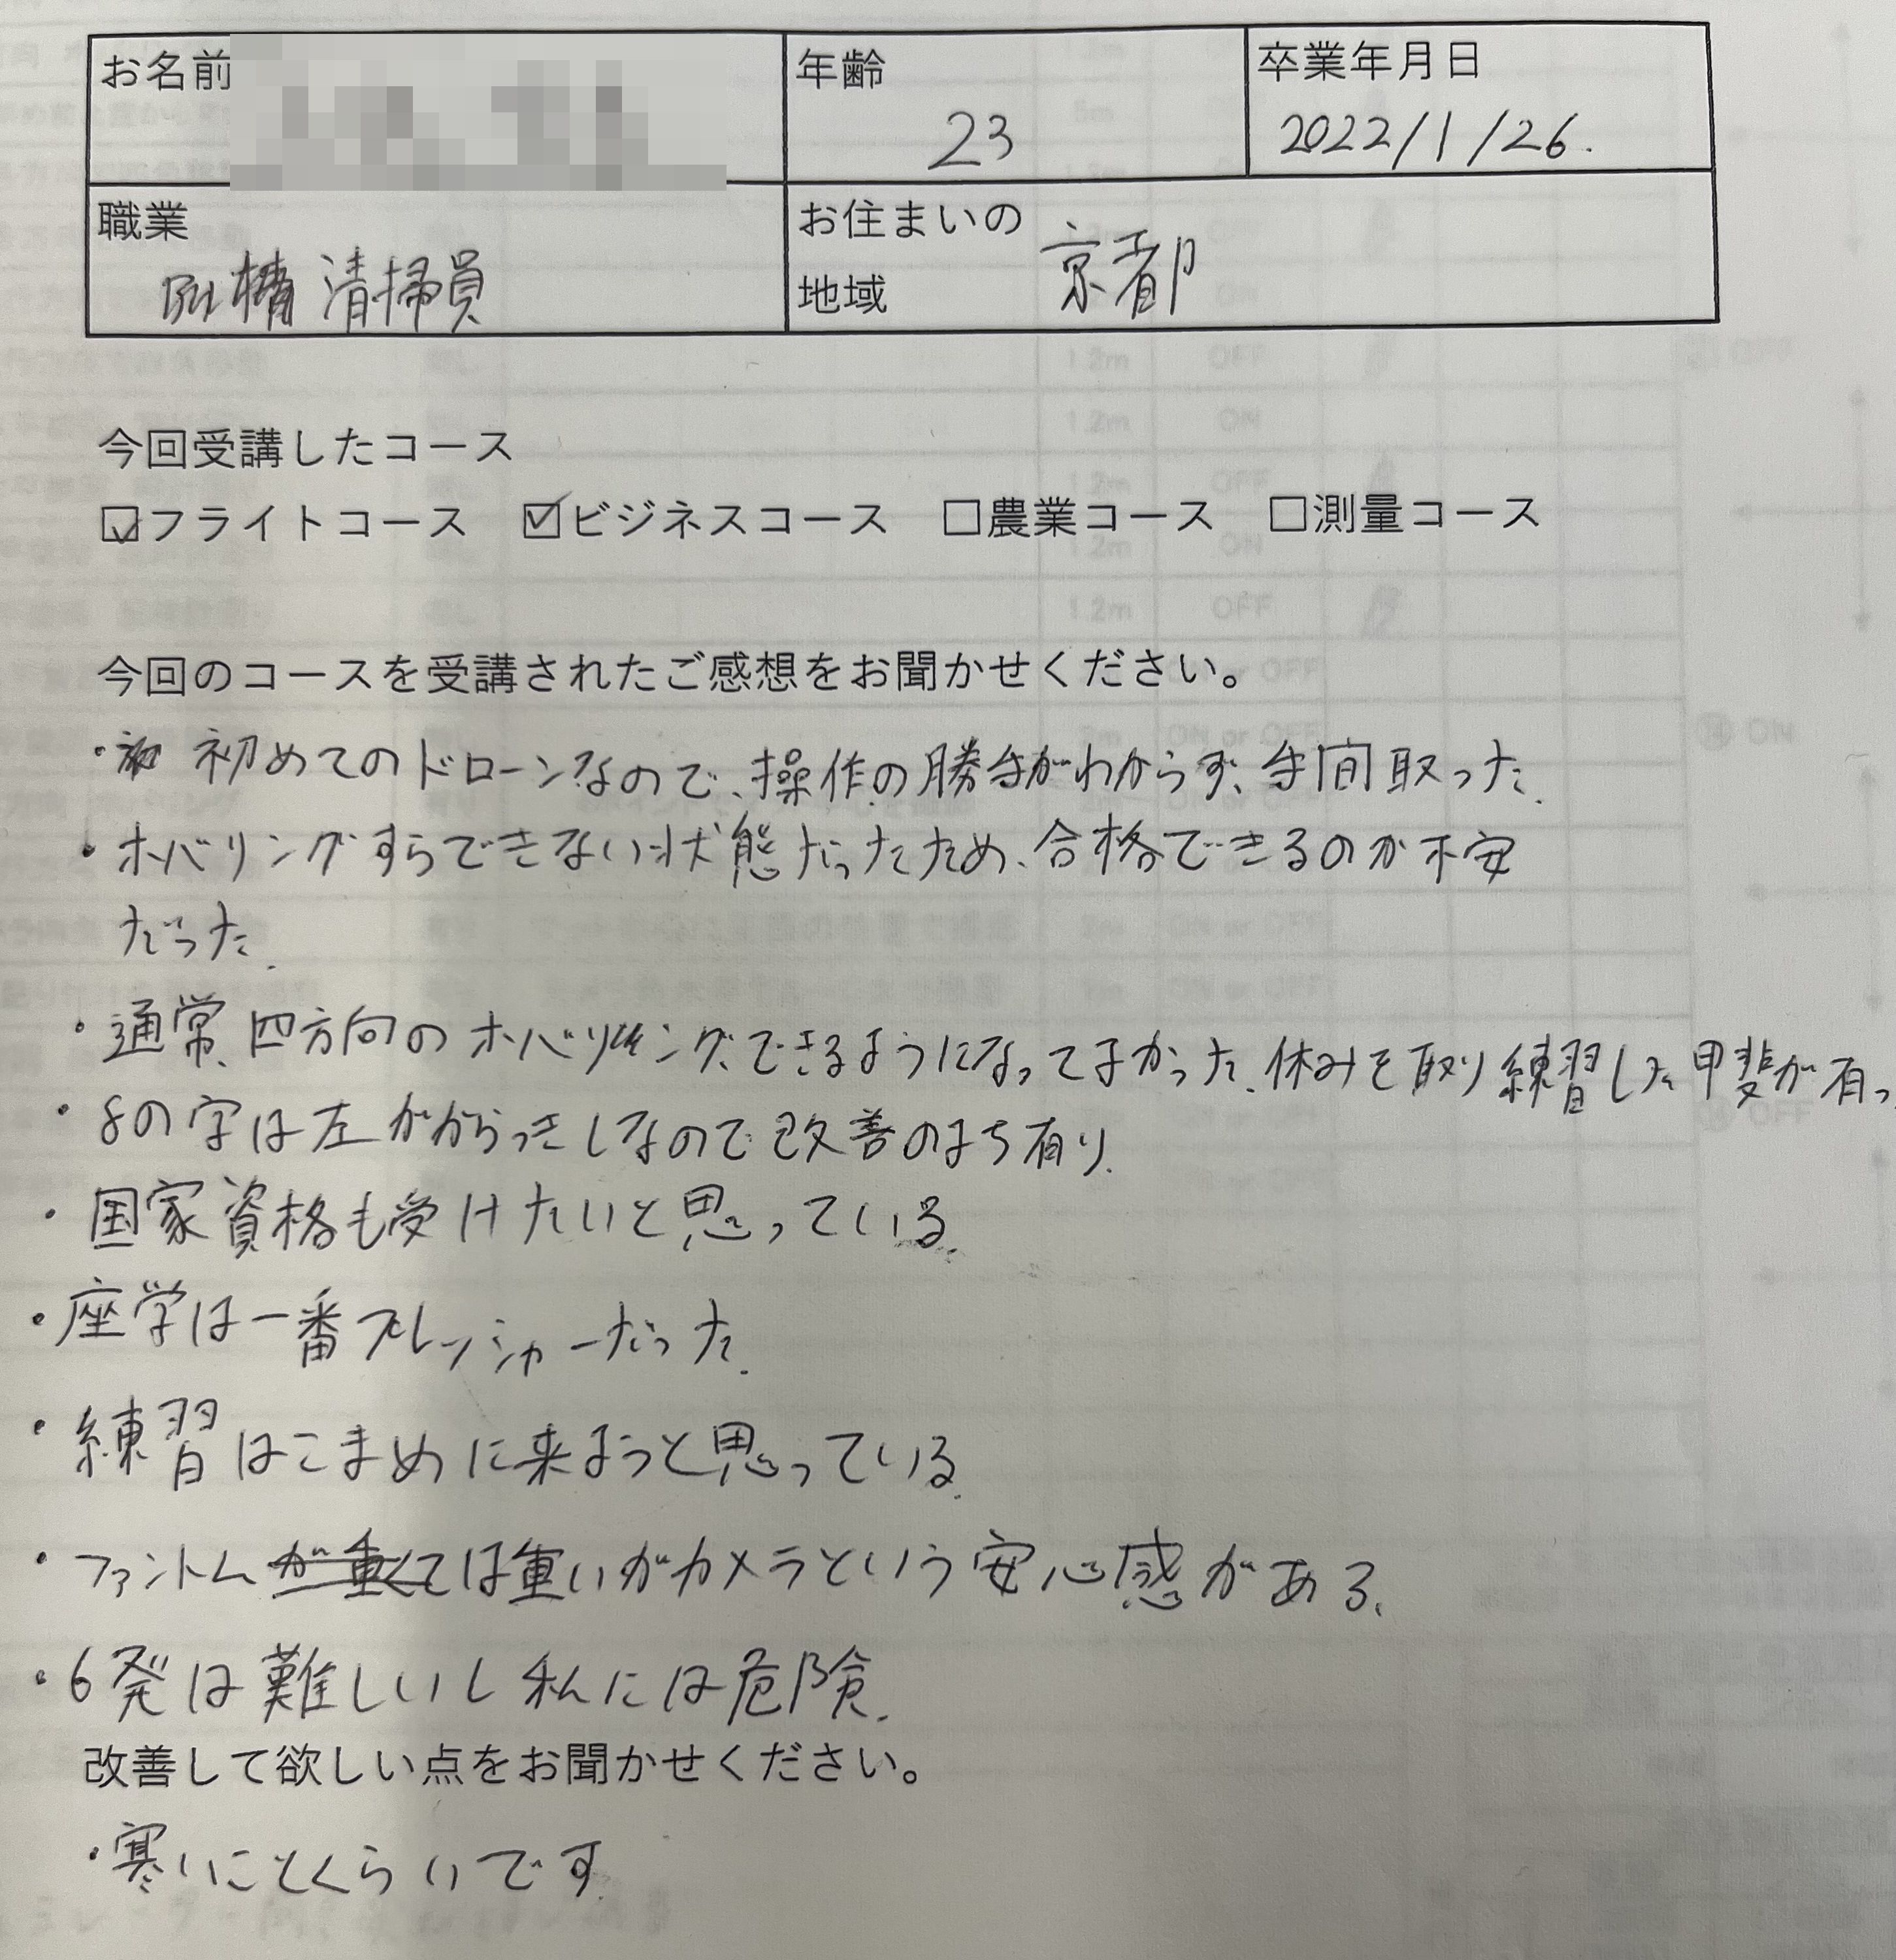 お名前
年齢
23
卒業年月日
2022/1/26.
職業
清掃員
お住まいの
地域
京都
今回受講したコース
☑フライトコース ☑ビジネスコース □農業コース □測量コース
今回のコースを受講されたご感想をお聞かせください。
・初めてのドローンなので、操作の勝手がわからず、手間取った.
・ホバリングすらできない状態だったため、合格できるのか不安
だった.
・通常、四方向のホバリングできるようになってよかった、休みを取り練習した甲斐が有っ
・8の字は左ががらっきしなので改善のよち有り.
・国家資格も受けたいと思っている.
・座学は一番プレッシャーだった.
・練習はこまめに来ようと思っている.
・ファントムは重いがカメラという安心感がある、
・6発は難しいし私には危険.
改善して欲しい点をお聞かせください。
・寒いことくらいです.